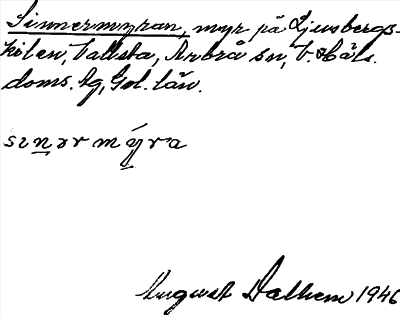 Sinnermyran, myr på Ljusbergs-
kölen, Vallsta, Arbrå sn, V. Häls.
doms. Ag, Gvl. län.
sınərmy̌ra
August Dalhem 1946